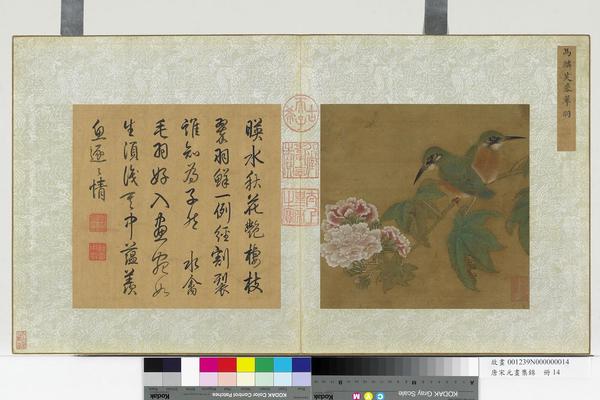 馬麟芙蓉翠羽
映水秋花艷橫枝
翠羽鮮一例經剪裂
誰知為子然 水禽
毛羽好入畫宛如
生須識其中蘊羨
魚逐〻情
故畫 001239N000000014
唐宋元畫集錦 冊 14
KODAK Color Control Patches
KODAK Gray Scale
C Y M